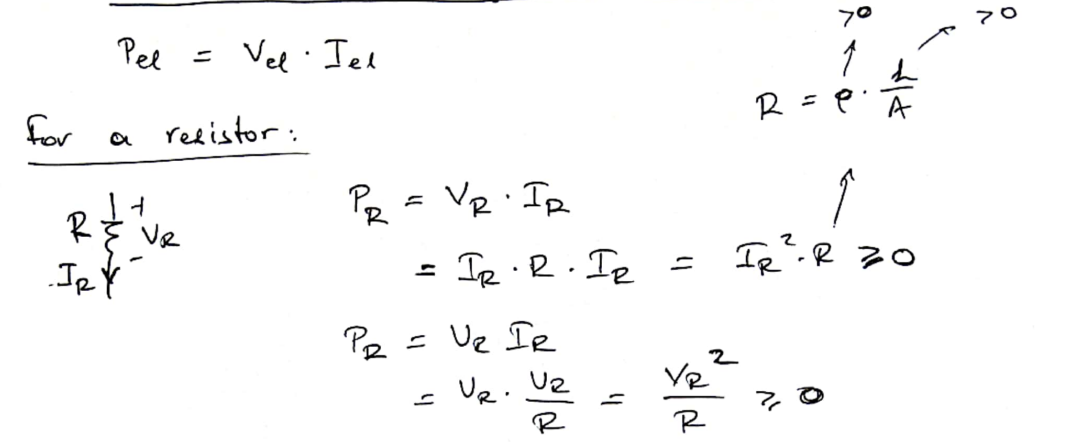 P_el = V_el · I_el
>0 >0
R = ρ · L/A
for a resistor:
R + V_R -
I_R
P_R = V_R · I_R
= I_R · R · I_R = I_R² · R ≥ 0
P_R = V_R I_R
= V_R · V_R/R = V_R²/R ≥ 0